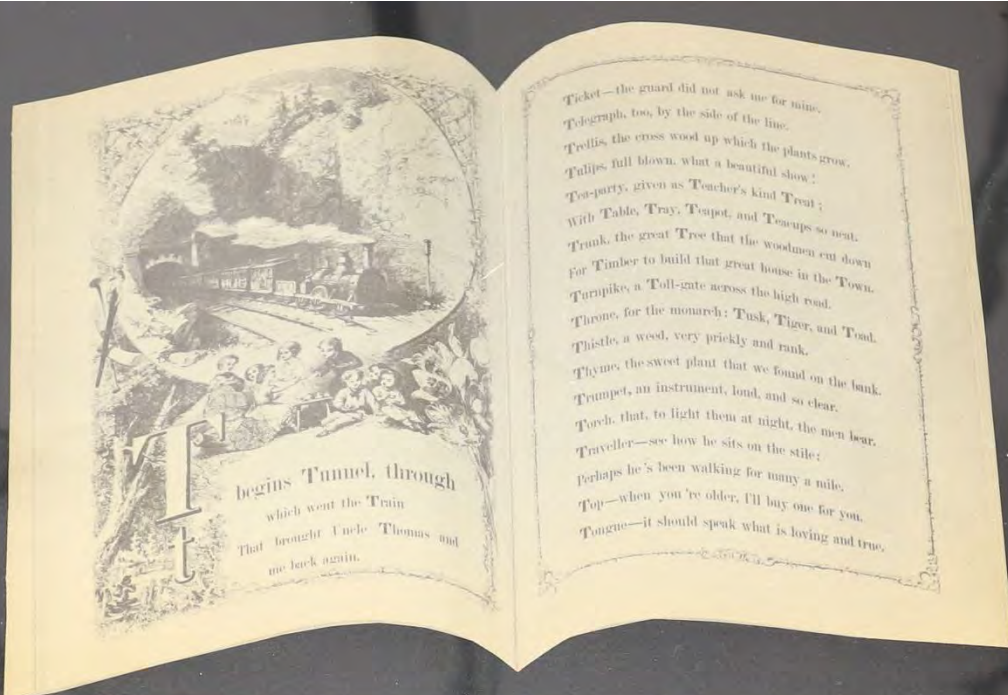 T
t
begins Tunnel, through
which went the Train
That brought Uncle Thomas and
me back again.
Ticket—the guard did not ask me for mine.
Telegraph, too, by the side of the line.
Trellis, the cross wood up which the plants grow.
Tulips, full blown, what a beautiful show!
Tea-party, given as Teacher's kind Treat;
With Table, Tray, Teapot, and Teacups so neat.
Trunk, the great Tree that the woodmen cut down
For Timber to build that great house in the Town.
Turnpike, a Toll-gate across the high road.
Throne, for the monarch: Tusk, Tiger, and Toad.
Thistle, a weed, very prickly and rank.
Thyme, the sweet plant that we found on the bank.
Trumpet, an instrument, loud, and so clear.
Torch, that, to light them at night, the men bear.
Traveller—see how he sits on the stile;
Perhaps he's been walking for many a mile.
Top—when you're older, I'll buy one for you.
Tongue—it should speak what is loving and true.